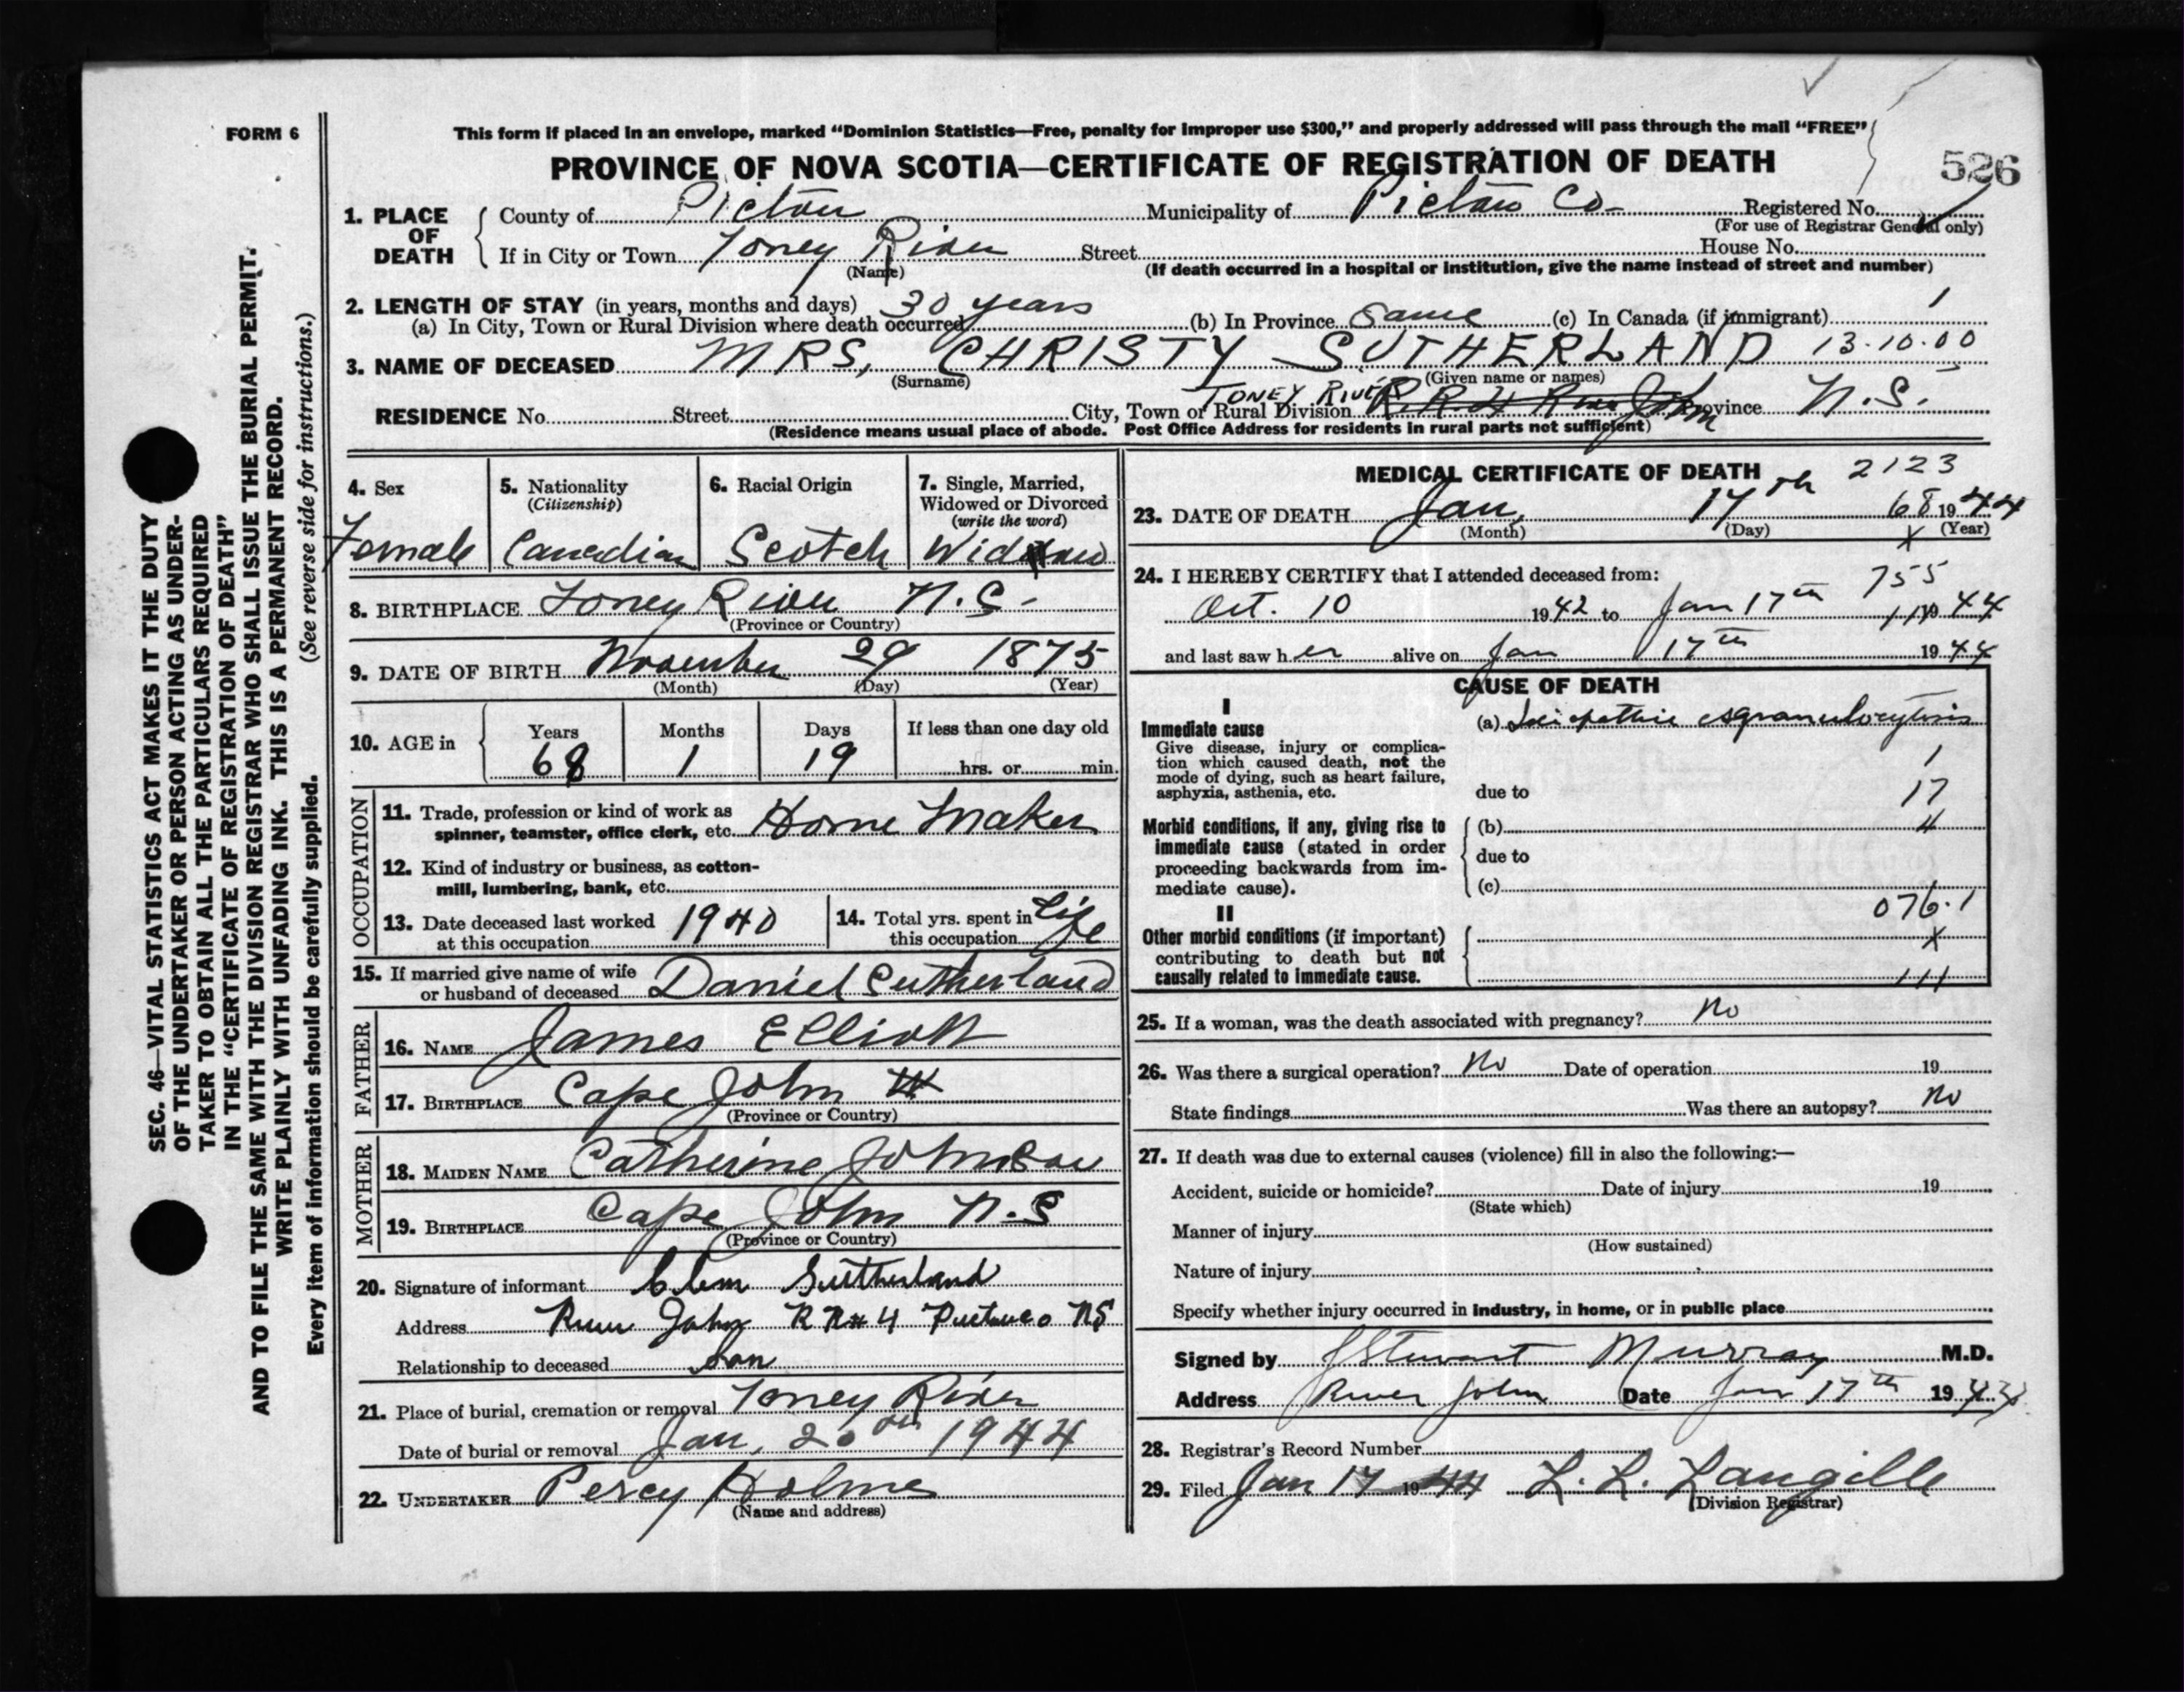 FORM 6
This form if placed in an envelope, marked "Dominion Statistics—Free, penalty for improper use $300," and properly addressed will pass through the mail "FREE"
PROVINCE OF NOVA SCOTIA—CERTIFICATE OF REGISTRATION OF DEATH
526
1. PLACE OF DEATH County of Pictou Municipality of Pictou Co- Registered No.
(For use of Registrar General only)
If in City or Town Toney River Street House No.
(Name) (If death occurred in a hospital or institution, give the name instead of street and number)
2. LENGTH OF STAY (in years, months and days) 30 years 1
(a) In City, Town or Rural Division where death occurred (b) In Province same (c) In Canada (if immigrant)
3. NAME OF DECEASED MRS, CHRISTY SUTHERLAND 13.10.00
(Surname) (Given name or names)
TONEY RIVER
RESIDENCE No. Street City, Town or Rural Division R.R.4 River John Province N.S.
(Residence means usual place of abode. Post Office Address for residents in rural parts not sufficient)
SEC. 46—VITAL STATISTICS ACT MAKES IT THE DUTY
OF THE UNDERTAKER OR PERSON ACTING AS UNDER-
TAKER TO OBTAIN ALL THE PARTICULARS REQUIRED
IN THE "CERTIFICATE OF REGISTRATION OF DEATH"
AND TO FILE THE SAME WITH THE DIVISION REGISTRAR WHO SHALL ISSUE THE BURIAL PERMIT.
WRITE PLAINLY WITH UNFADING INK. THIS IS A PERMANENT RECORD.
Every item of information should be carefully supplied. (See reverse side for instructions.)
4. Sex
Female
5. Nationality
(Citizenship)
Canadian
6. Racial Origin
Scotch
7. Single, Married,
Widowed or Divorced
(write the word)
Widow
8. BIRTHPLACE Toney River N.S-
(Province or Country)
9. DATE OF BIRTH November 29 1875
(Month) (Day) (Year)
10. AGE in Years Months Days If less than one day old
68 1 19 hrs. or min.
OCCUPATION
11. Trade, profession or kind of work as
spinner, teamster, office clerk, etc. Home Maker
12. Kind of industry or business, as cotton-
mill, lumbering, bank, etc.
13. Date deceased last worked
at this occupation 1940
14. Total yrs. spent in
this occupation Life
15. If married give name of wife
or husband of deceased Daniel Sutherland
FATHER
16. NAME James Elliott
17. BIRTHPLACE Cape John
(Province or Country)
MOTHER
18. MAIDEN NAME Catherine Johnson
19. BIRTHPLACE Cape John N.S
(Province or Country)
20. Signature of informant Clem Sutherland
Address River John RR#4 Pictou Co NS
Relationship to deceased Son
21. Place of burial, cremation or removal Toney River
Date of burial or removal Jan, 20th 1944
22. UNDERTAKER Percy Holme
(Name and address)
MEDICAL CERTIFICATE OF DEATH 2123
23. DATE OF DEATH Jan, 17th 68 1944
(Month) (Day) X (Year)
24. I HEREBY CERTIFY that I attended deceased from:
755
Oct. 10 1942 to Jan 17th 1944
and last saw her alive on Jan 17th 1944
CAUSE OF DEATH
I
Immediate cause
Give disease, injury or complica-
tion which caused death, not the
mode of dying, such as heart failure,
asphyxia, asthenia, etc.
(a) Idiopathic agranulocytosis
1
due to 17
Morbid conditions, if any, giving rise to
immediate cause (stated in order
proceeding backwards from im-
mediate cause).
(b) 4
due to
(c)
076.1
II
Other morbid conditions (if important)
contributing to death but not
causally related to immediate cause.
X
111
25. If a woman, was the death associated with pregnancy? No
26. Was there a surgical operation? No Date of operation 19
State findings Was there an autopsy? No
27. If death was due to external causes (violence) fill in also the following:—
Accident, suicide or homicide? Date of injury 19
(State which)
Manner of injury
(How sustained)
Nature of injury
Specify whether injury occurred in industry, in home, or in public place
Signed by J Stewart Murray M.D.
Address River John Date Jan 17th 1944
28. Registrar's Record Number
29. Filed Jan 17 1944 L. L. Langille
(Division Registrar)